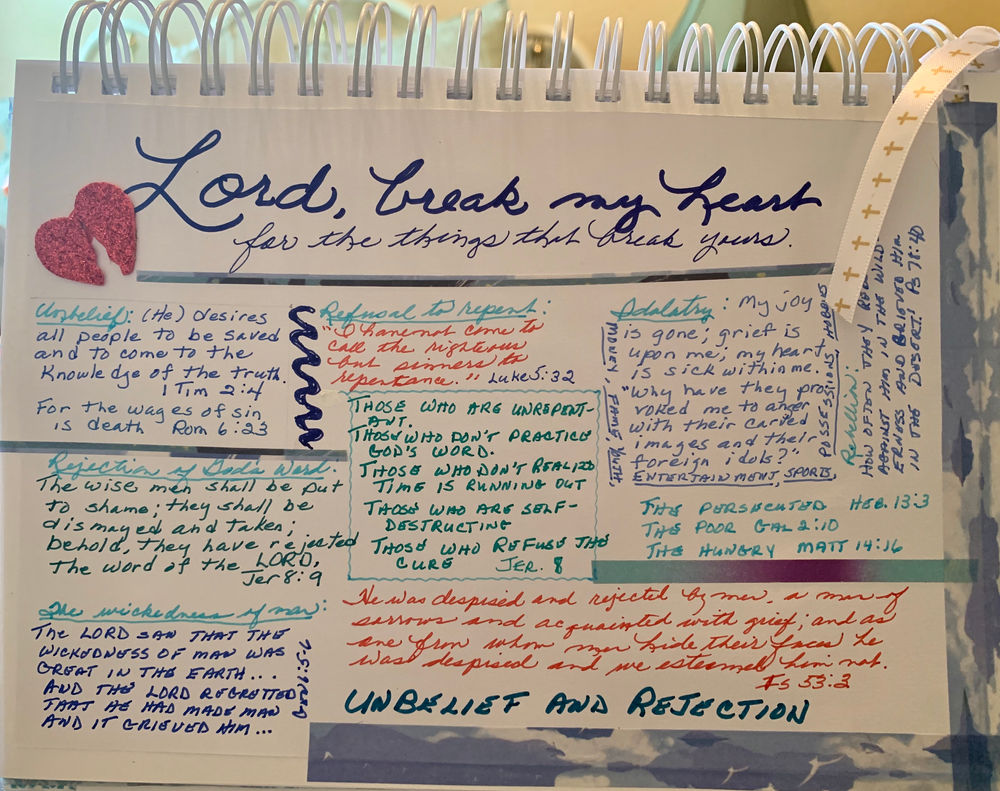 Lord, break my heart
for the things that break yours.
Unbelief: (He) desires
all people to be saved
and to come to the
knowledge of the truth.
1 Tim 2:4
For the wages of sin
is death Rom 6:23
Refusal to repent:
"I have not come to
call the righteous
but sinners to
repentance." Luke 5:32
THOSE WHO ARE UNREPENT-
ANT.
THOSE WHO DON'T PRACTICE
GOD'S WORD.
THOSE WHO DON'T REALIZE
TIME IS RUNNING OUT
THOSE WHO ARE SELF-
DESTRUCTING
THOSE WHO REFUSE THE
CURE JER. 8
Idolatry: My joy
is gone; grief is
upon me; my heart
is sick within me.
"Why have they pro
voked me to anger
with their carved
images and their
foreign idols?"
ENTERTAINMENT, SPORTS,
MONEY, FAME, YOUTH,
POSSESSIONS HOBBIES
Rebellion:
HOW OFTEN THEY
AGAINST HIM IN THE WILD
ERNESS AND GRIEVED HIM
IN THE DESERT! PS 78:40
THE PERSECUTED HEB. 13:3
THE POOR GAL 2:10
THE HUNGRY MATT 14:16
Rejection of God's Word:
The wise men shall be put
to shame; they shall be
dismayed and taken;
behold, they have rejected
the word of the LORD,
Jer 8:9
The wickedness of man:
THE LORD SAW THAT THE
WICKEDNESS OF MAN WAS
GREAT IN THE EARTH...
AND THE LORD REGRETTED
THAT HE HAD MADE MAN
AND IT GRIEVED HIM...
He was despised and rejected by men, a man of
sorrows and acquainted with grief; and as
one from whom men hide their faces he
was despised and we esteemed him not.
Is 53:3
UNBELIEF AND REJECTION